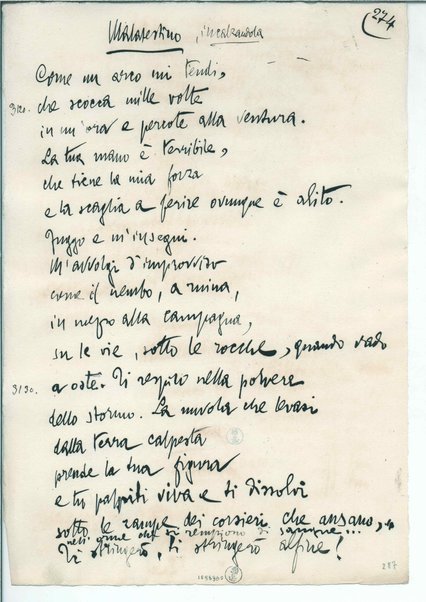 274
Malatestino, incalzandola
Come un arco mi tendi,
3120. che scocca mille volte
in un'ora e percote alla ventura.
La tua mano è terribile,
che tiene la mia forza
e la scaglia a ferire ovunque è alito.
Fuggo e m'insegui.
M'avvolgi d'improvviso
come il nembo, a ruina,
in mezzo alla campagna,
su le vie, sotto le rocche, quando vado
3130. a oste. Ti respiro nella polvere
dello stormo. La nuvola che levasi
dalla terra calpesta
prende la tua figura
e tu palpiti viva e ti dissolvi
sotto le zampe dei corsieri che ansano,
nell'orme che si rempiono di sangue...
Ti stringerò, ti stringerò alfine!
287